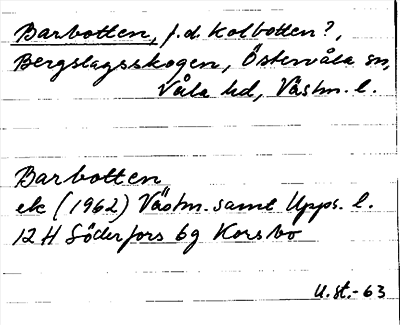 Barbotten, f.d. Kolbotten?,
Bergslagsskogen, Östervåla sn,
Våla hd, Västm. l.
Barbotten
ek (1962) Västm. samt Upps. l.
12 H Söderfors 6g Korsbo
U.st.-63